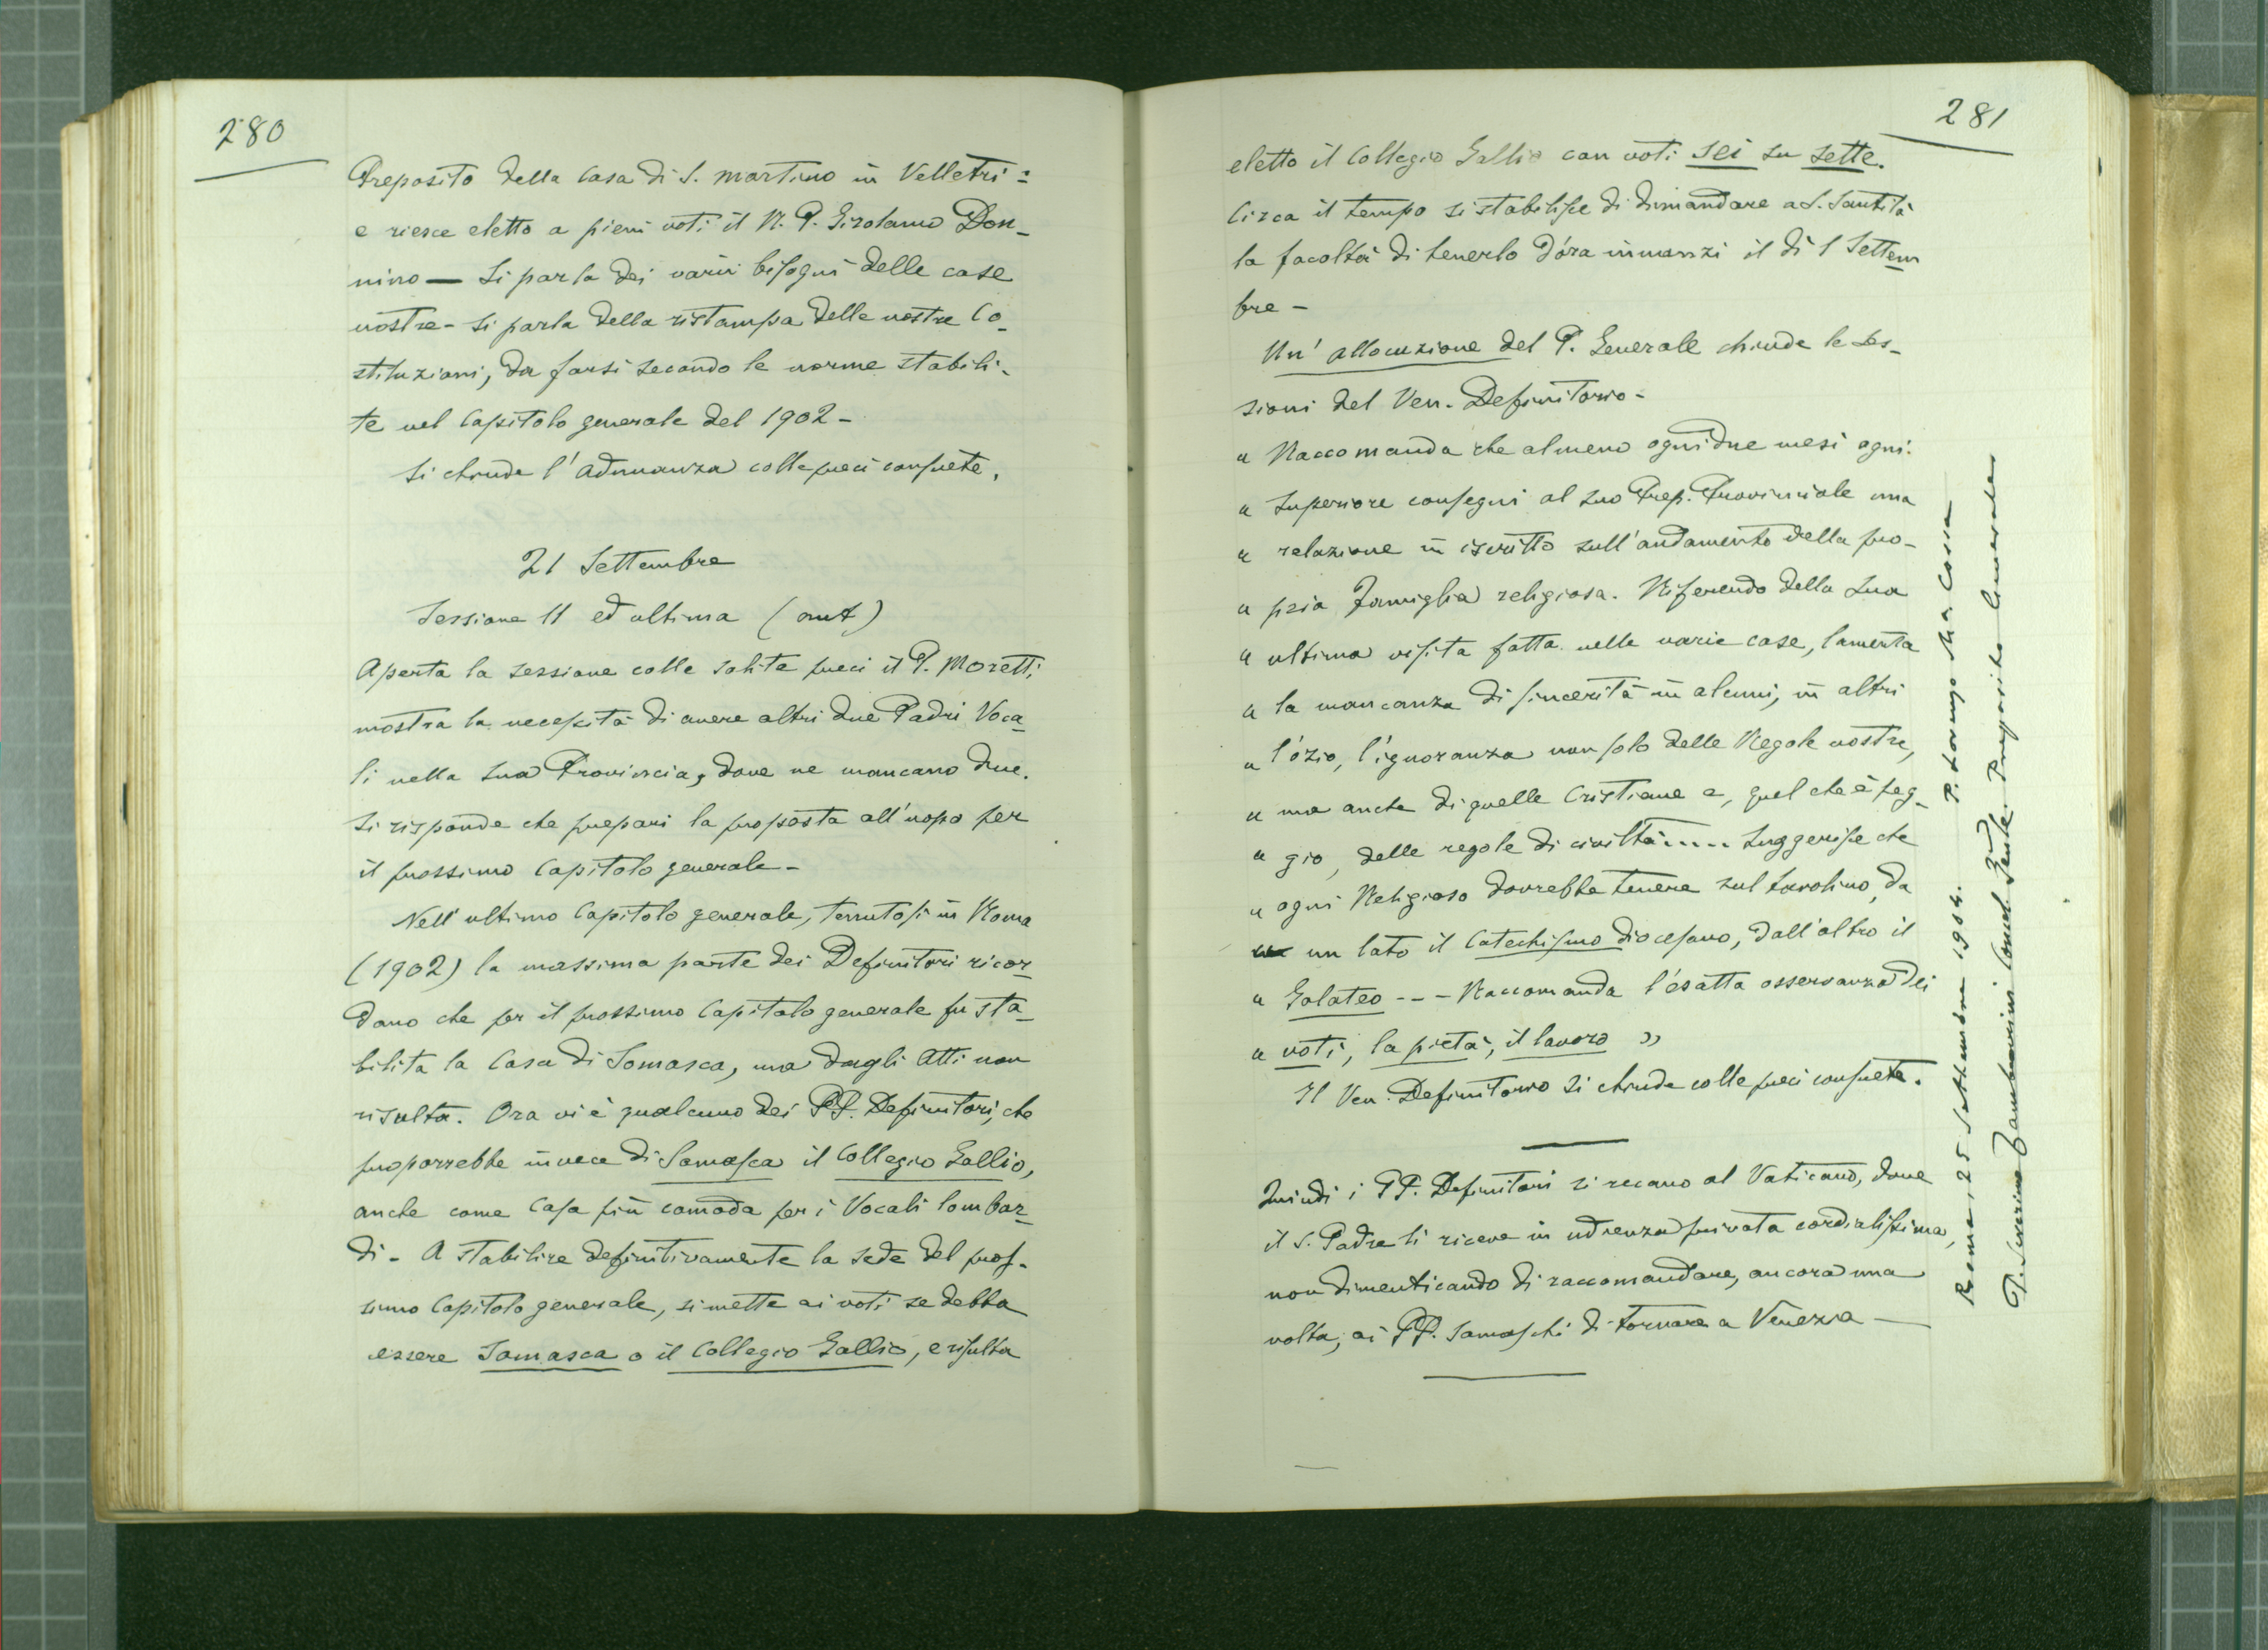 280
Preposito della Casa di S. Martino in Velletri:
e riesce eletto a pieni voti il M. P. Girolamo Don-
nino — Si parla dei varii bisogni delle case
nostre - Si parla della ristampa delle nostre Co-
stituzioni, da farsi secondo le norme stabili-
te nel Capitolo generale del 1902 -
Si chiude l'adunanza colle preci consuete.
21 Settembre
Sessione 11 ed ultima (ant)
Aperta la sessione colle solite preci il P. Moretti
mostra la necessità di avere altri due Padri Voca-
li nella sua Provincia, dove ne mancano due.
Si risponde che prepari la proposta all'uopo per
il prossimo Capitolo generale -
Nell'ultimo Capitolo generale, tenutosi in Roma
(1902) la massima parte dei Definitori ricor-
dano che per il prossimo Capitolo generale fu sta-
bilita la Casa di Somasca, ma dagli Atti non
risulta. Ora vi è qualcuno dei PP. Definitori, che
proporrebbe invece di Somasca il Collegio Gallio,
anche come Casa più comoda per i Vocali lombar-
di - A stabilire definitivamente la sede del pros-
simo Capitolo generale, si mette ai voti se debba
essere Somasca o il Collegio Gallio, e risulta
281
eletto il Collegio Gallio con voti sei su sette.
Circa il tempo si stabilisce di dimandare a S. Santità
la facoltà di tenerlo d'ora innanzi il dì 1 Settem
bre -
Un' allocuzione del P. Generale chiude le ses-
sioni del Ven. Definitorio -
« Raccomanda che almeno ogni due mesi ogni
« Superiore consegni al suo Prep. Provinciale una
« relazione in iscritto sull'andamento della pro-
« pria famiglia religiosa. Riferendo della sua
« ultima visita fatta nelle varie case, lamenta
« la mancanza di sincerità in alcuni, in altri
« l'ozio, l'ignoranza non solo delle Regole nostre,
« ma anche di quelle Cristiane e, quel che è peg-
« gio, delle regole di civiltà..... Suggerisce che
« ogni Religioso dovrebbe tenere sul tavolino, da
un lato il Catechismo diocesano, dall'altro il
« Galateo --- Raccomanda l'esatta osservanza dei
« voti, la pietà, il lavoro »
Il Ven. Definitorio si chiude colle preci consuete.
Quindi i PP. Definitori si recano al Vaticano, dove
il S. Padre li riceve in udienza privata cordialissima,
non dimenticando di raccomandare, ancora una
volta, ai PP. Somaschi di tornare a Venezia —
Roma, 25 Settembre 1904. P. Lorenzo M. Cossa
P. Severino Tamburini Preposito Generale